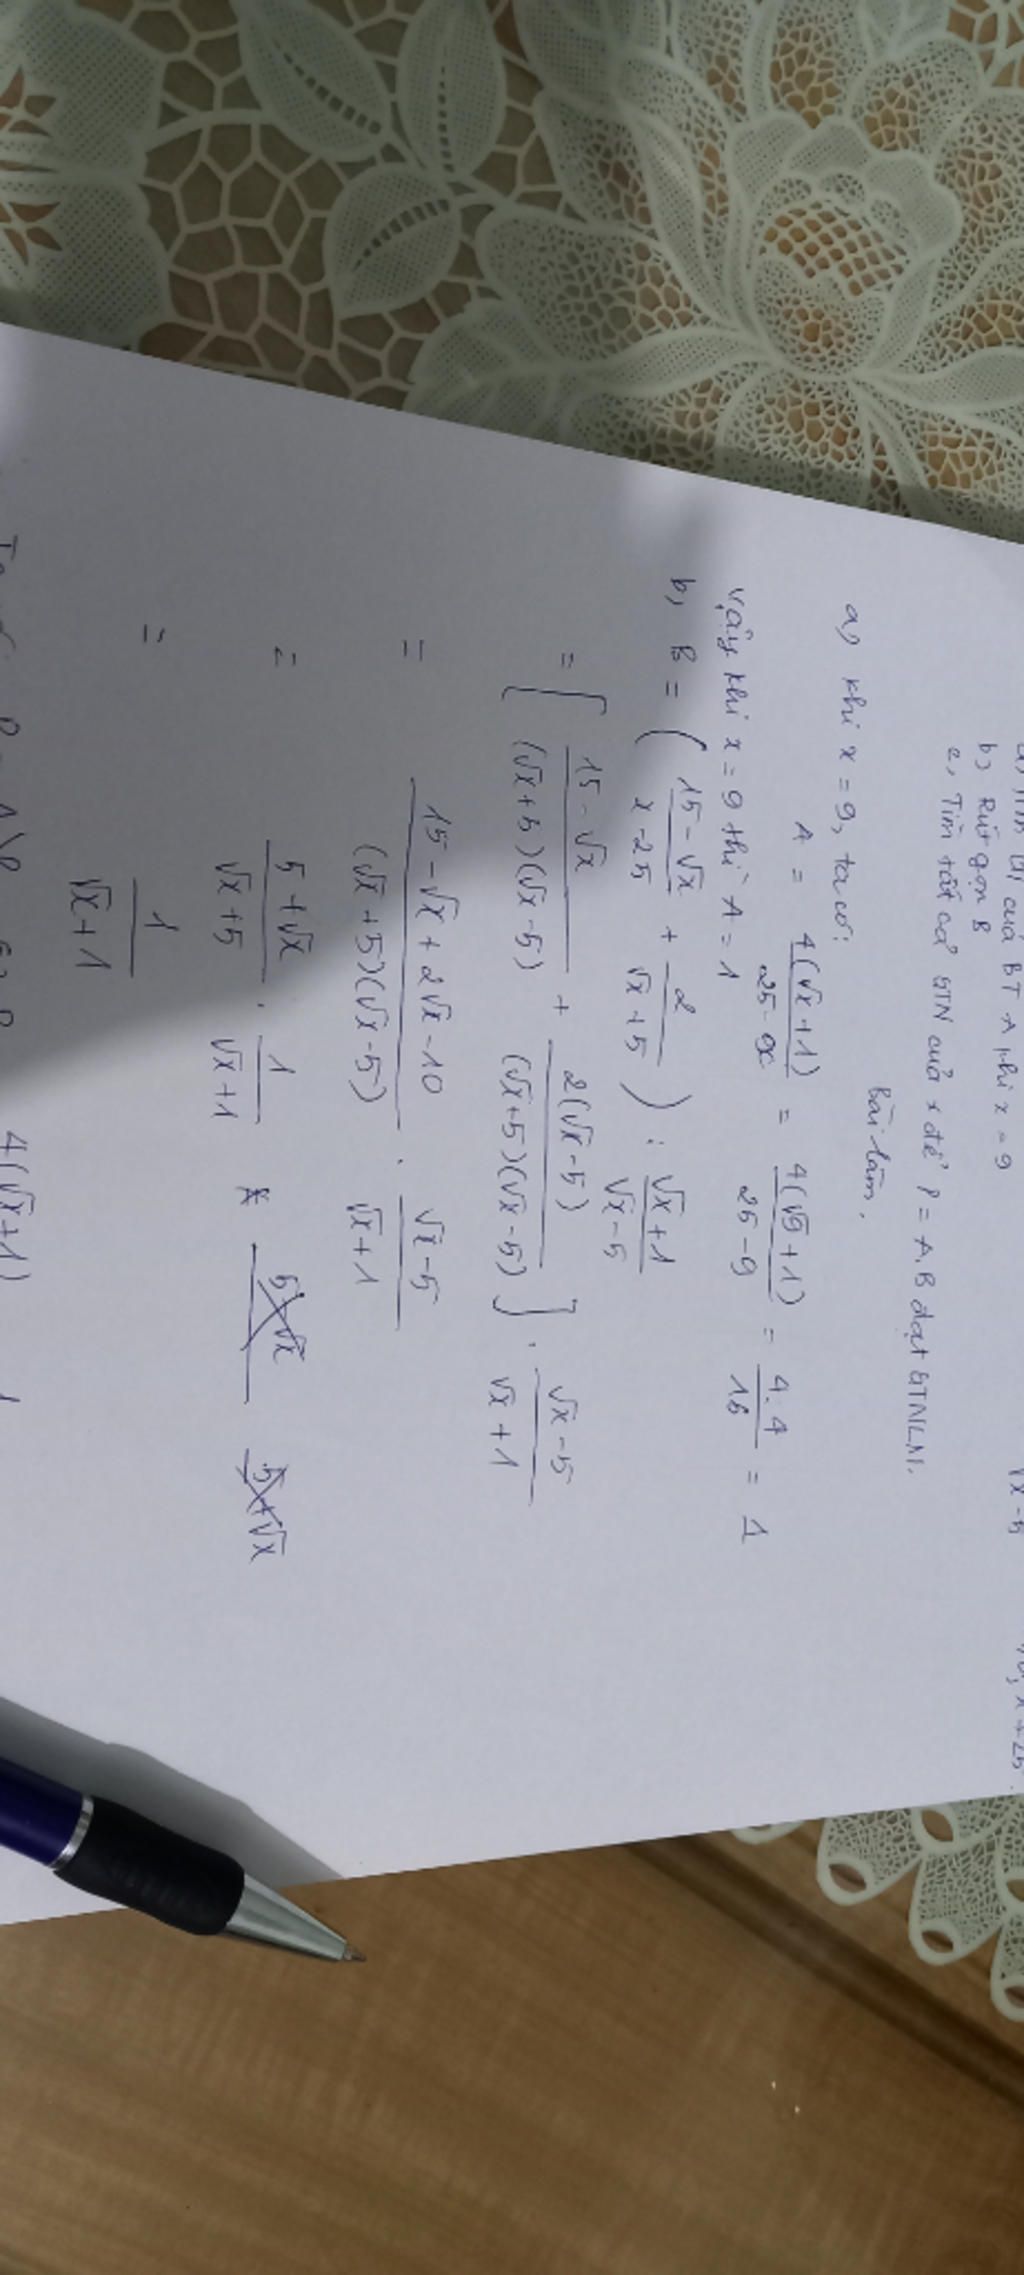 BT A khi x = 9
b) Rút gọn B
c, Tìm tất cả GTN của x để P = A.B đạt GTNLN.
Bài làm.
a) Khi x = 9, ta có:
A = 4(√x + 1) / 25 - x = 4(√9 + 1) / 25 - 9 = 4.4 / 16 = 1
Vậy khi x = 9 thì A = 1
b, B = ( 15 - √x / x - 25 + 2 / √x + 5 ) : √x + 1 / √x - 5
= [ 15 - √x / (√x + 5)(√x - 5) + 2(√x - 5) / (√x + 5)(√x - 5) ] . √x - 5 / √x + 1
= 15 - √x + 2√x - 10 / (√x + 5)(√x - 5) . √x - 5 / √x + 1
= 5 + √x / √x + 5 . 1 / √x + 1
= 1 / √x + 1
4(√x + 1)